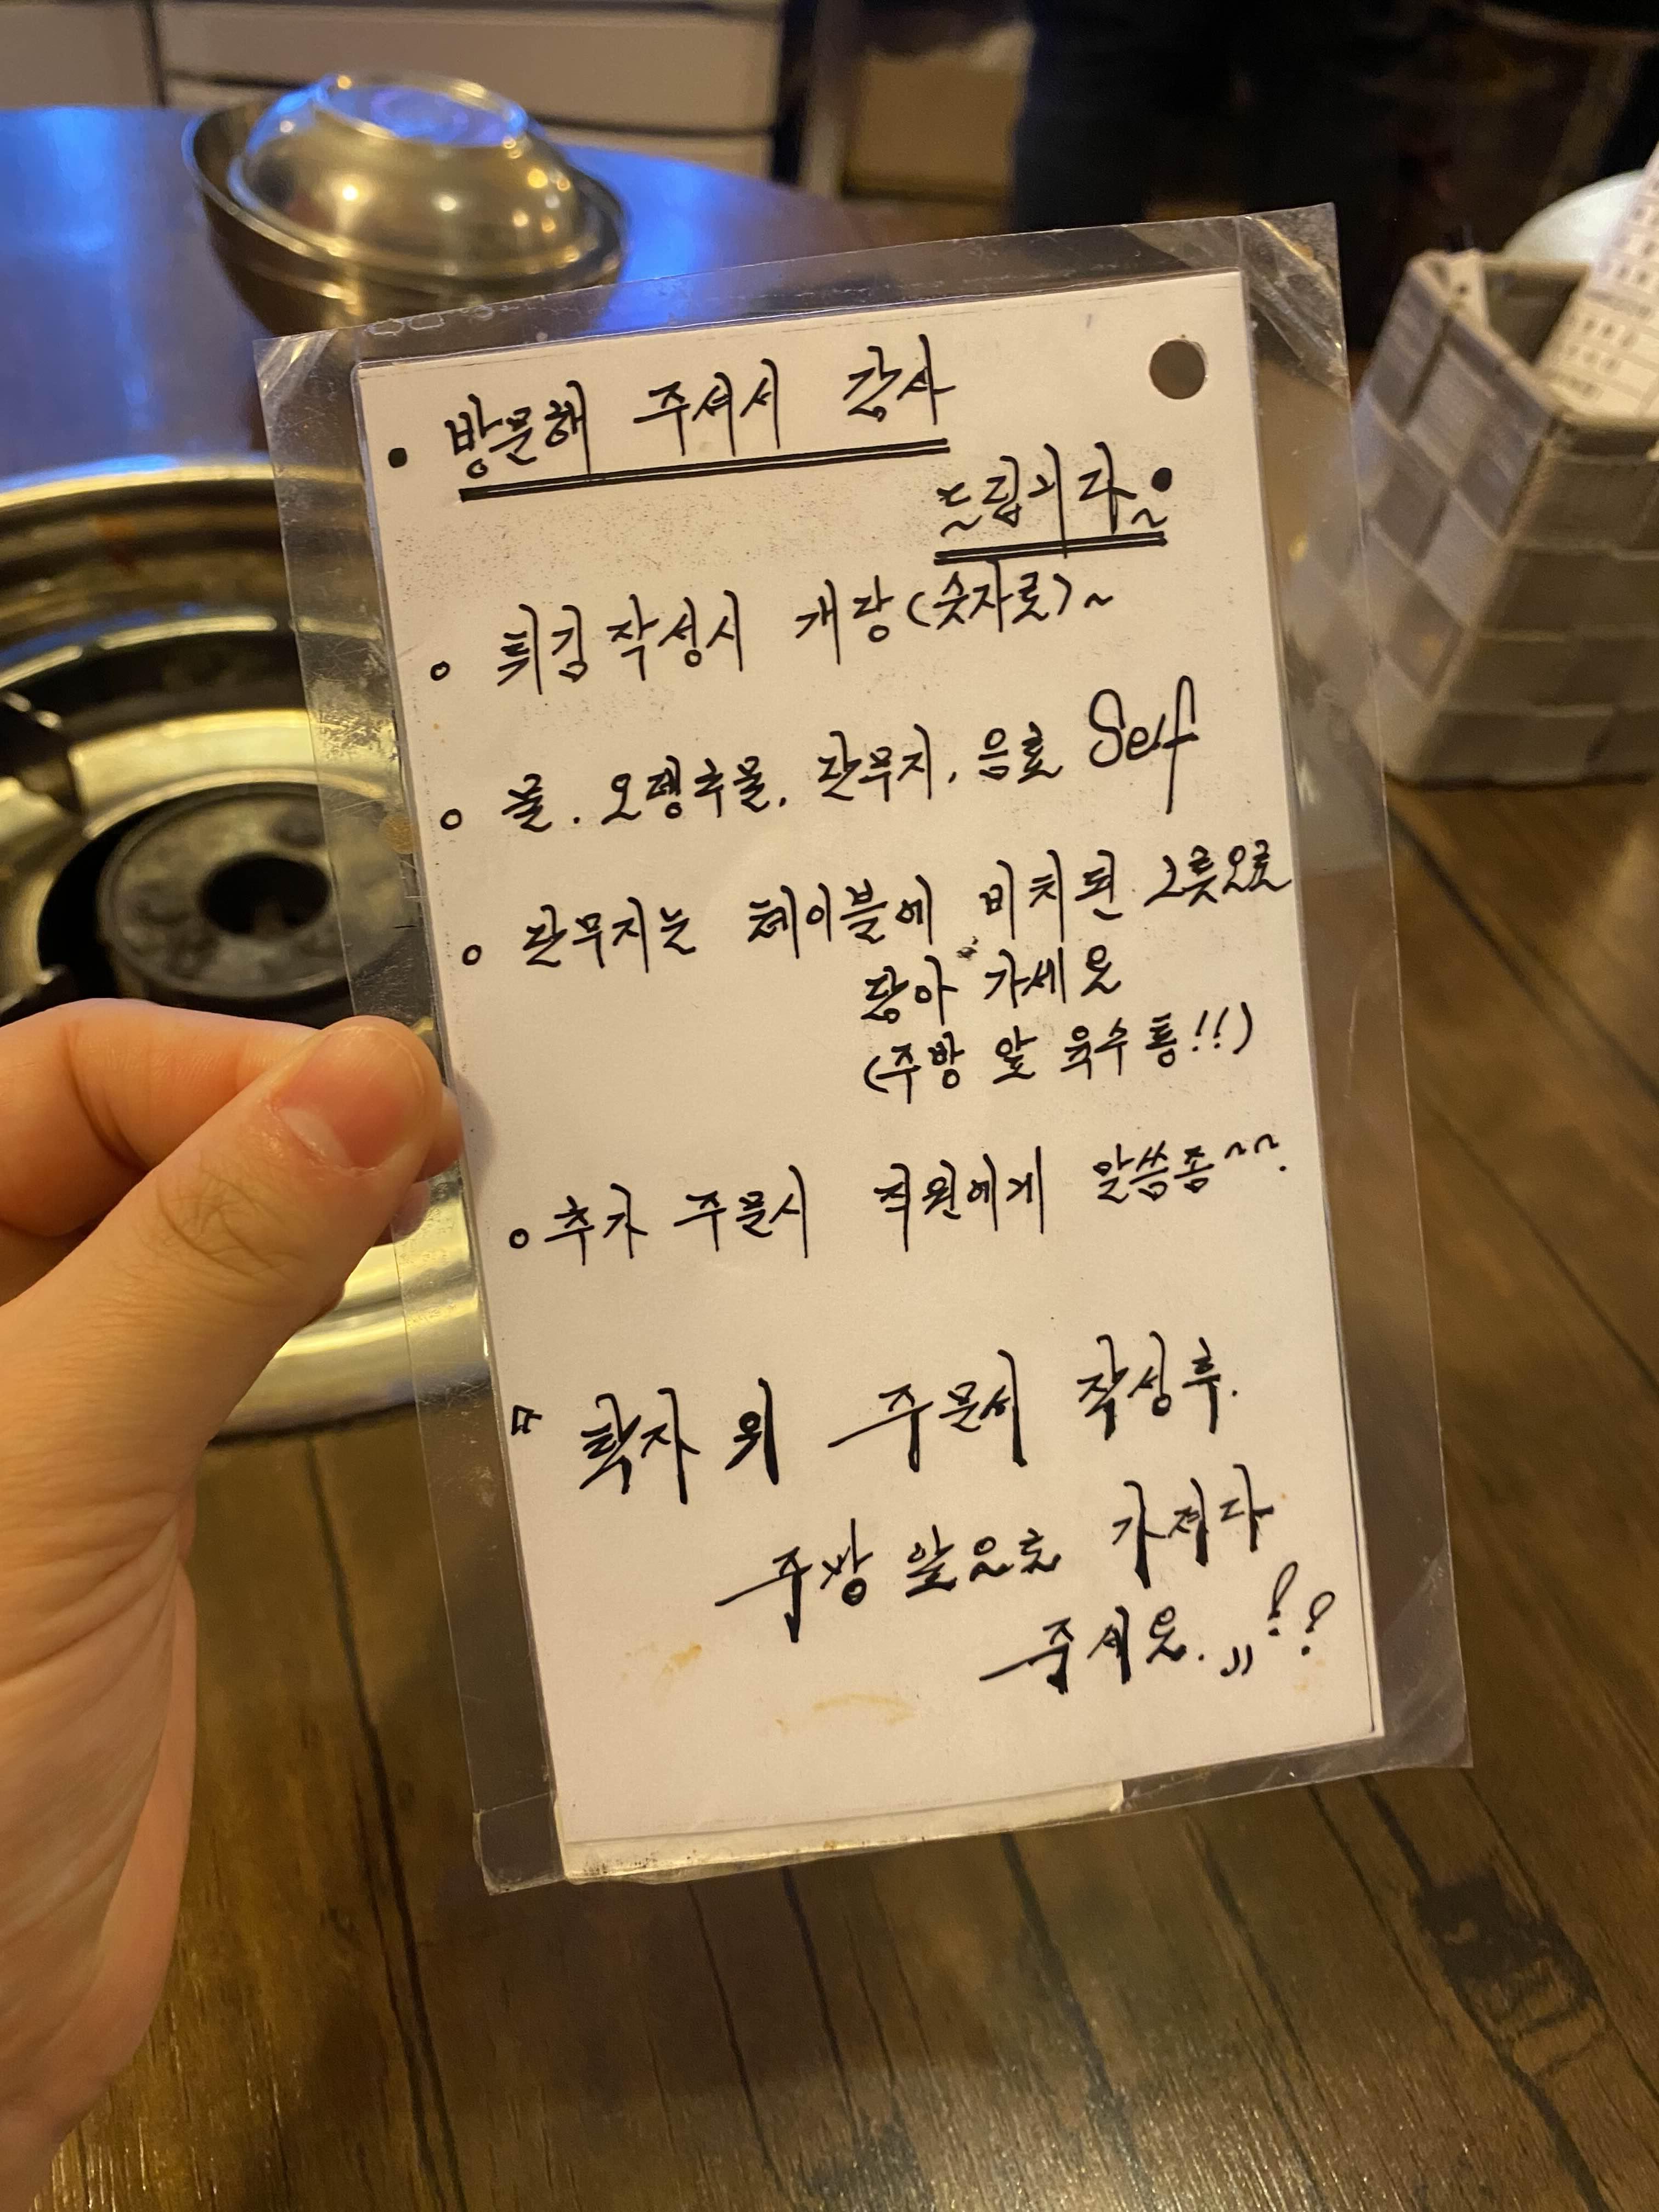 • 방문해 주셔서 감사
드립니다.
○ 튀김 작성시 개당 (숫자로)~
○ 물. 오뎅국물. 단무지. 음료 Self
○ 단무지는 테이블에 비치된 그릇으로
담아 가세요
(주방 앞 육수통!!)
○ 추가 주문시 직원에게 말씀좀~~.
주문서 작성후.
주방 앞으로 가져다
주세요.,,!!